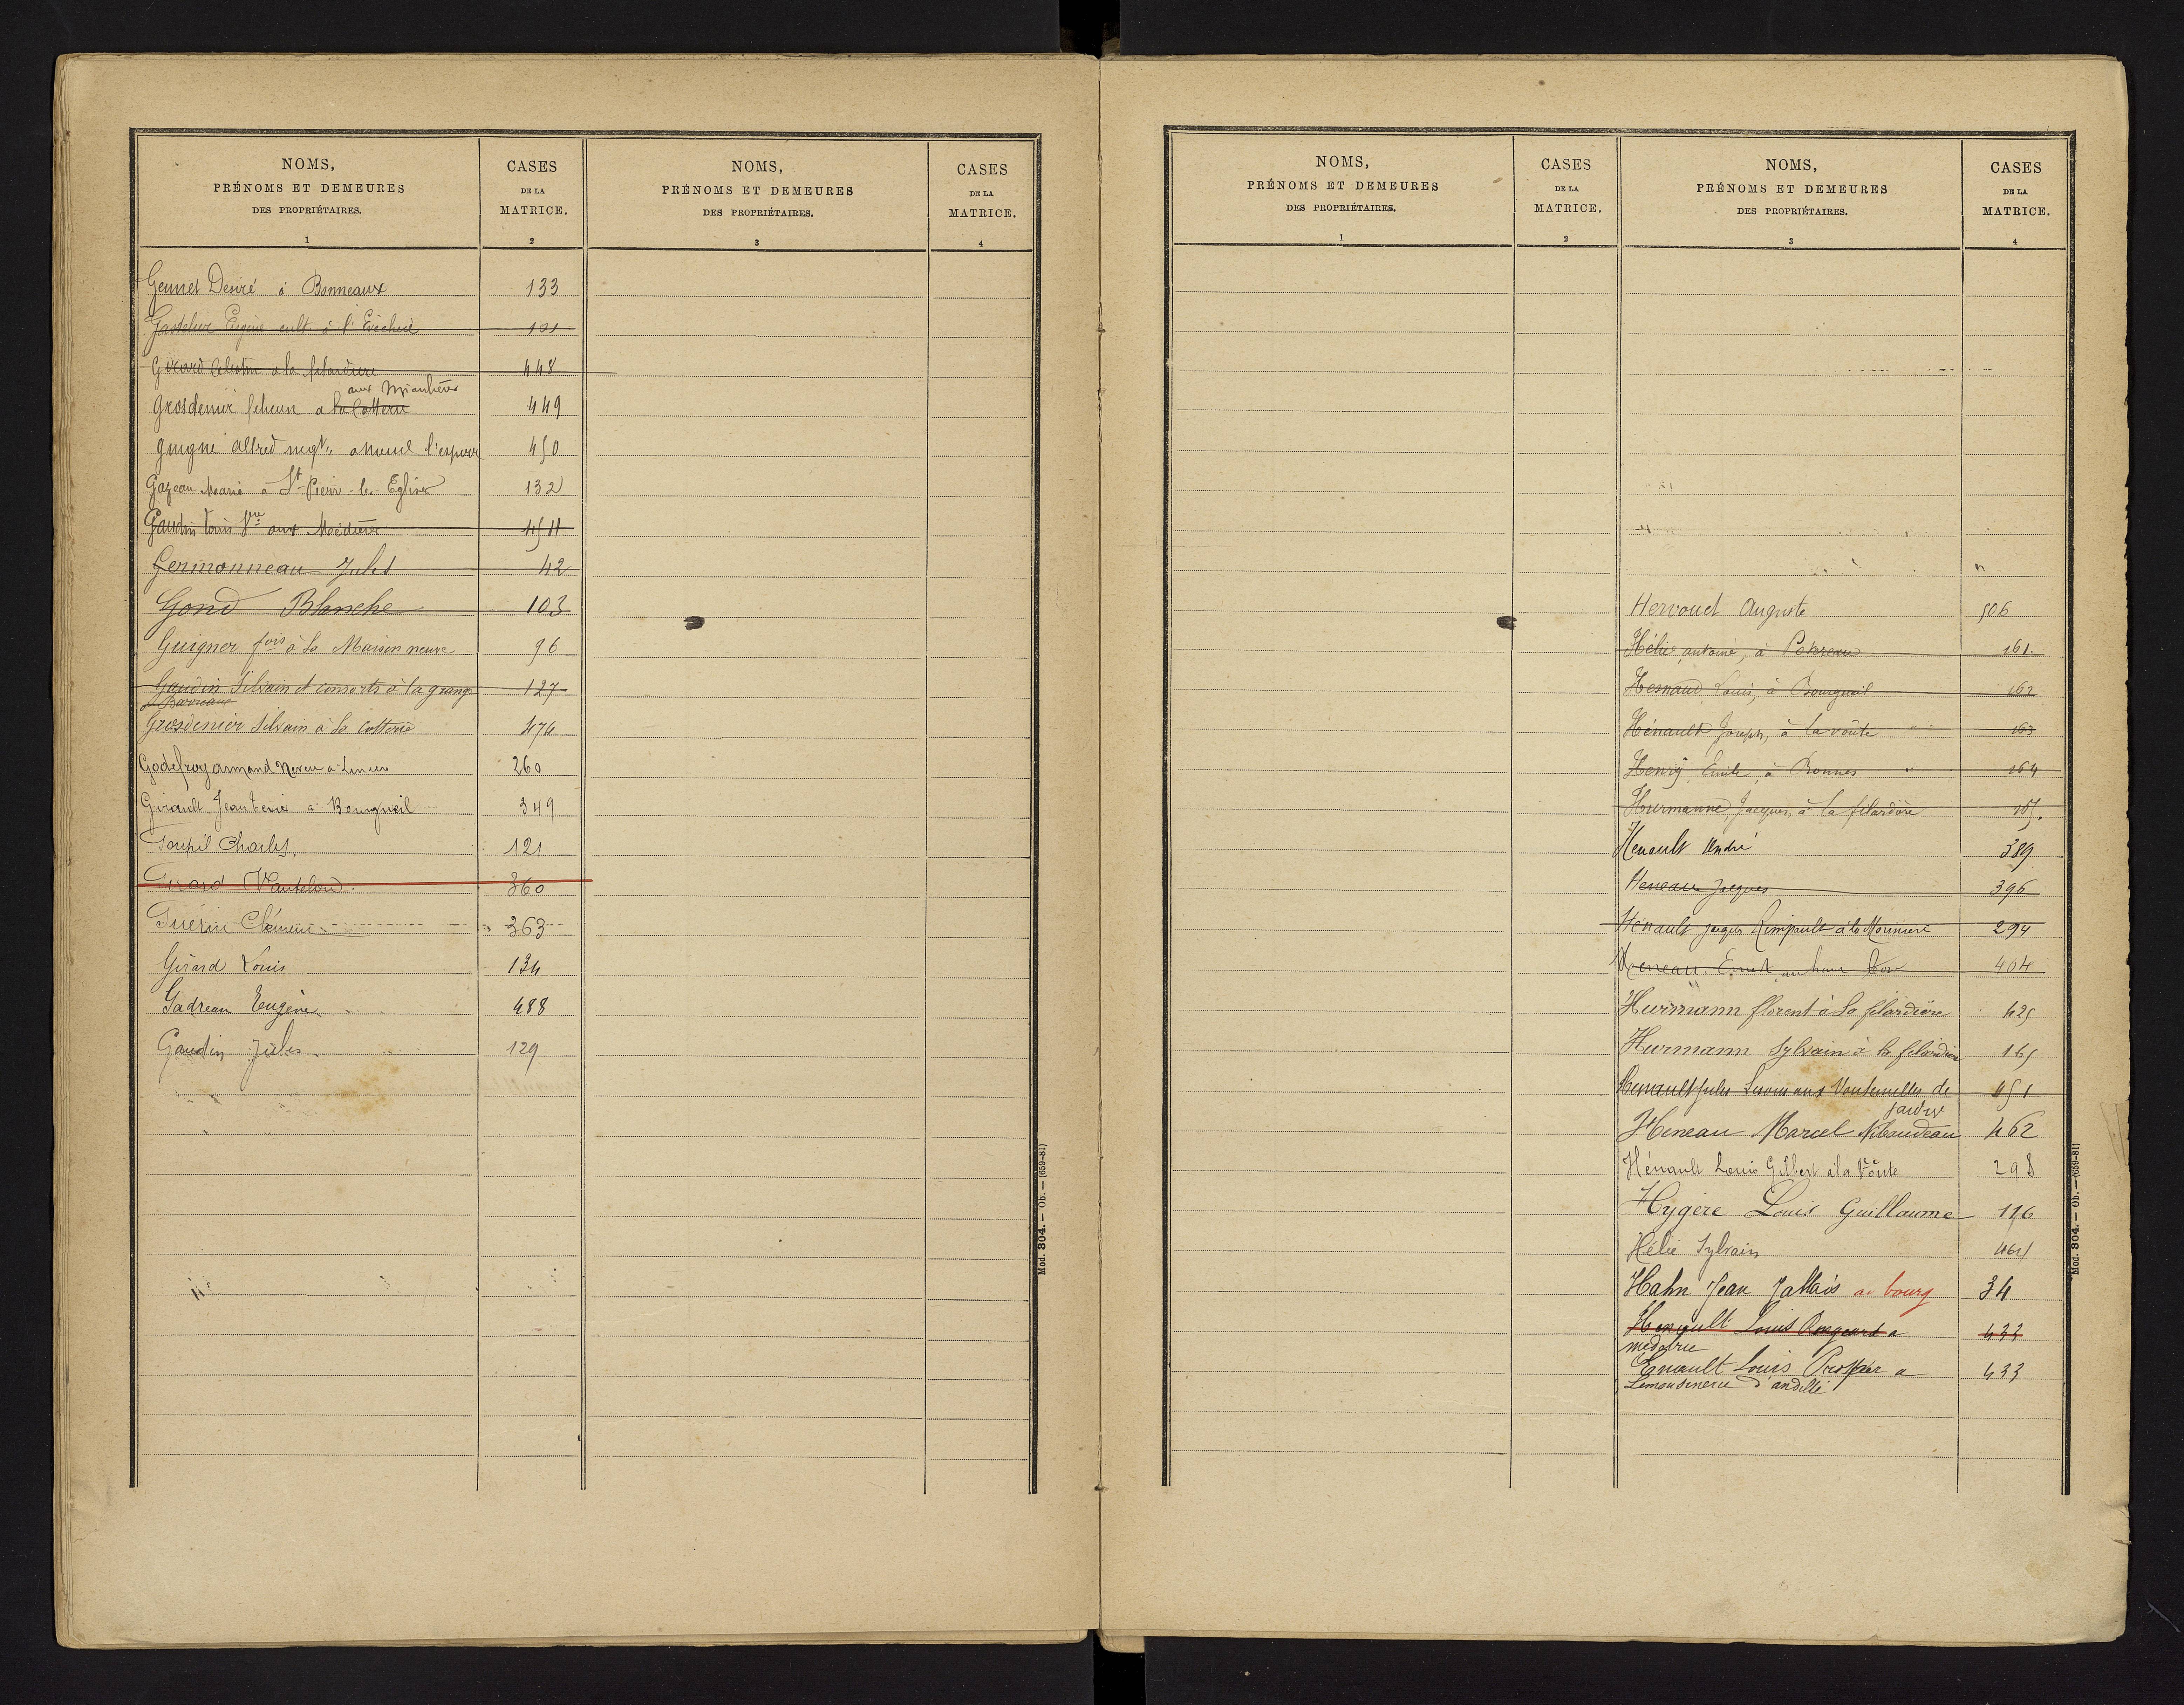 NOMS,
PRÉNOMS ET DEMEURES
DES PROPRIÉTAIRES.
1
CASES
DE LA
MATRICE.
2
NOMS,
PRÉNOMS ET DEMEURES
DES PROPRIÉTAIRES.
3
CASES
DE LA
MATRICE.
4
Gennet Desiré à Bonneaux 133
Eugène cult. à l' 101
Girard Celestin a la filardiere 448
aux
Grosdenier a la Cotterie 449
Guigné Alfred negt. 450
Gazeau Marie à St Pierre-les-Eglises 132
Gaudin Louis Vve aux 454
Germonneau Jules 42
Gond Blanche 103
Guigner fois à la Maison neuve 96
Gaudin Silvain et consorts à la grange 127
Barreau
Grosdenier Silvain à la Cotterie 474
Godefroy Armand Neveu à 260
Girault Jean à Bourgueil 349
Goupil Charles. 121
Girard Vantelon. 360
Guérin Clément 363
Girard Louis 134
Gadreau Eugène 488
Gaudin Jules. 129
Mod. 304. — Ob. — (659-81)
NOMS,
PRÉNOMS ET DEMEURES
DES PROPRIÉTAIRES.
1
CASES
DE LA
MATRICE.
2
NOMS,
PRÉNOMS ET DEMEURES
DES PROPRIÉTAIRES.
3
CASES
DE LA
MATRICE.
4
Hervouet Auguste 506
Hélie, antoine, à 161.
Hesnaud Louis, à Bourgueil 162
Hénault Joseph, à la voûte 163
Henry Emile, à Bonnes 164
Hurmanne, Jacques, à la filardière 165.
Henault André 389
Heneau Jacques 396
Hénault Jacques Rimpault à la 294
Heneau Ernest au 404
Hurmann florent à la filardière 425
Hurmann Sylvain à la filardière 165
Henault Jules aux de 451
Jardres
Heneau Marcel Nibaudeau 462
Hénault Louis Gilbert à la Voûte 298
Hygère Louis Guillaume 116
Hélie Sylvain 464
Hahn Jean Jallais au bourg 34
Henault Louis a 433
Enault Louis Prosper a 433
Limousinerie d'andillé
Mod. 304. — Ob. — (659-81)